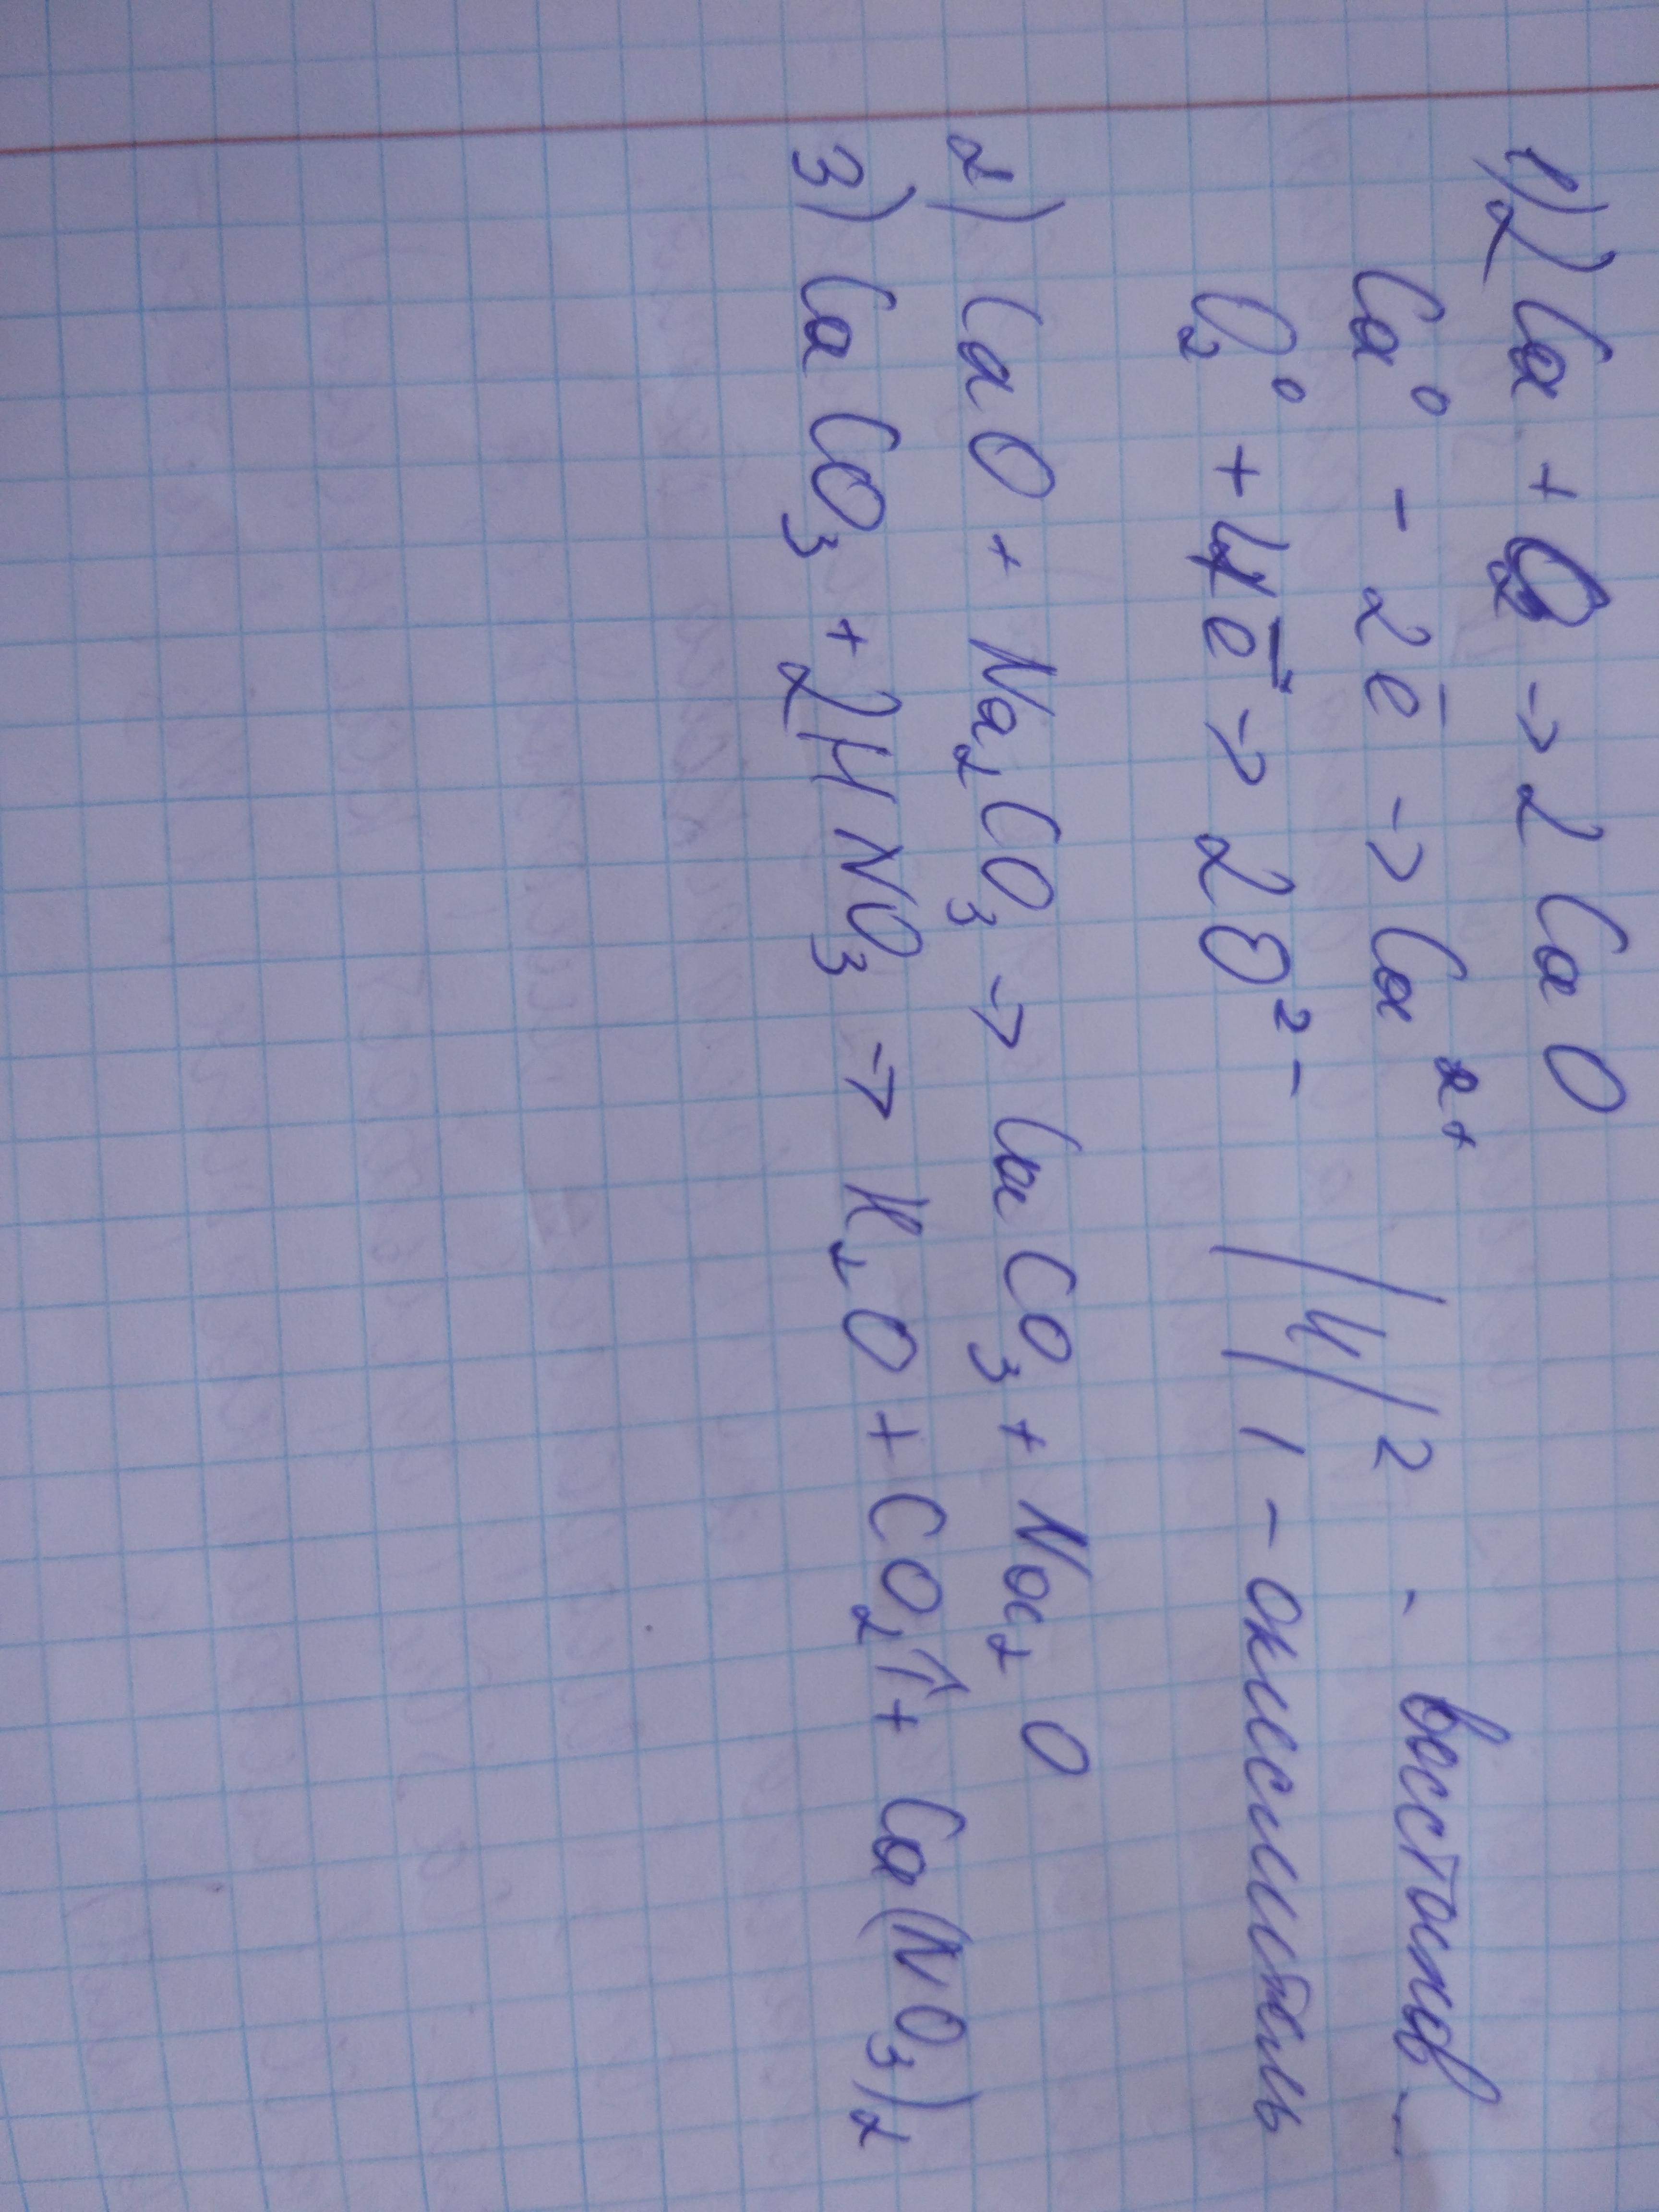 1) 2Ca + O₂ → 2CaO
Ca⁰ - 2e⁻ → Ca²⁺ | | 2 - восстанов-
O₂⁰ + 4e⁻ → 2O²⁻ | 4 | 1 - окислитель
2) CaO + Na₂CO₃ → CaCO₃ + Na₂O
3) CaCO₃ + 2HNO₃ → H₂O + CO₂↑ + Ca(NO₃)₂